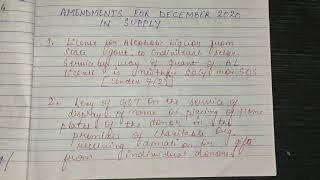 AMENDMENTS FOR DECEMBER 2020
IN SUPPLY
1. License for Alcoholic Liquor from
State Govt. to Individual
Service by way of grant of AL
license is neither SOG nor SOS
[under 7(2)]
2. Levy of GST on the service of
display of name or placing of name
plates of the donor in the
premises of charitable org.
receiving donation or gifts
from individual donors.